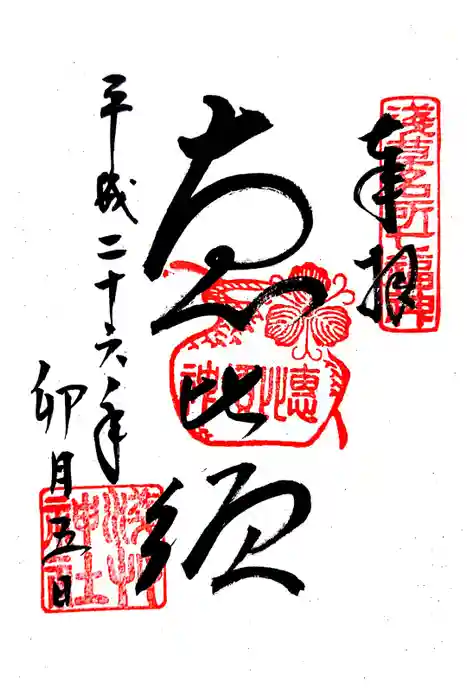 奉拝
淺草名所七福神
恵比須
惠比須神
平成二十六年
卯月五日
淺草神社